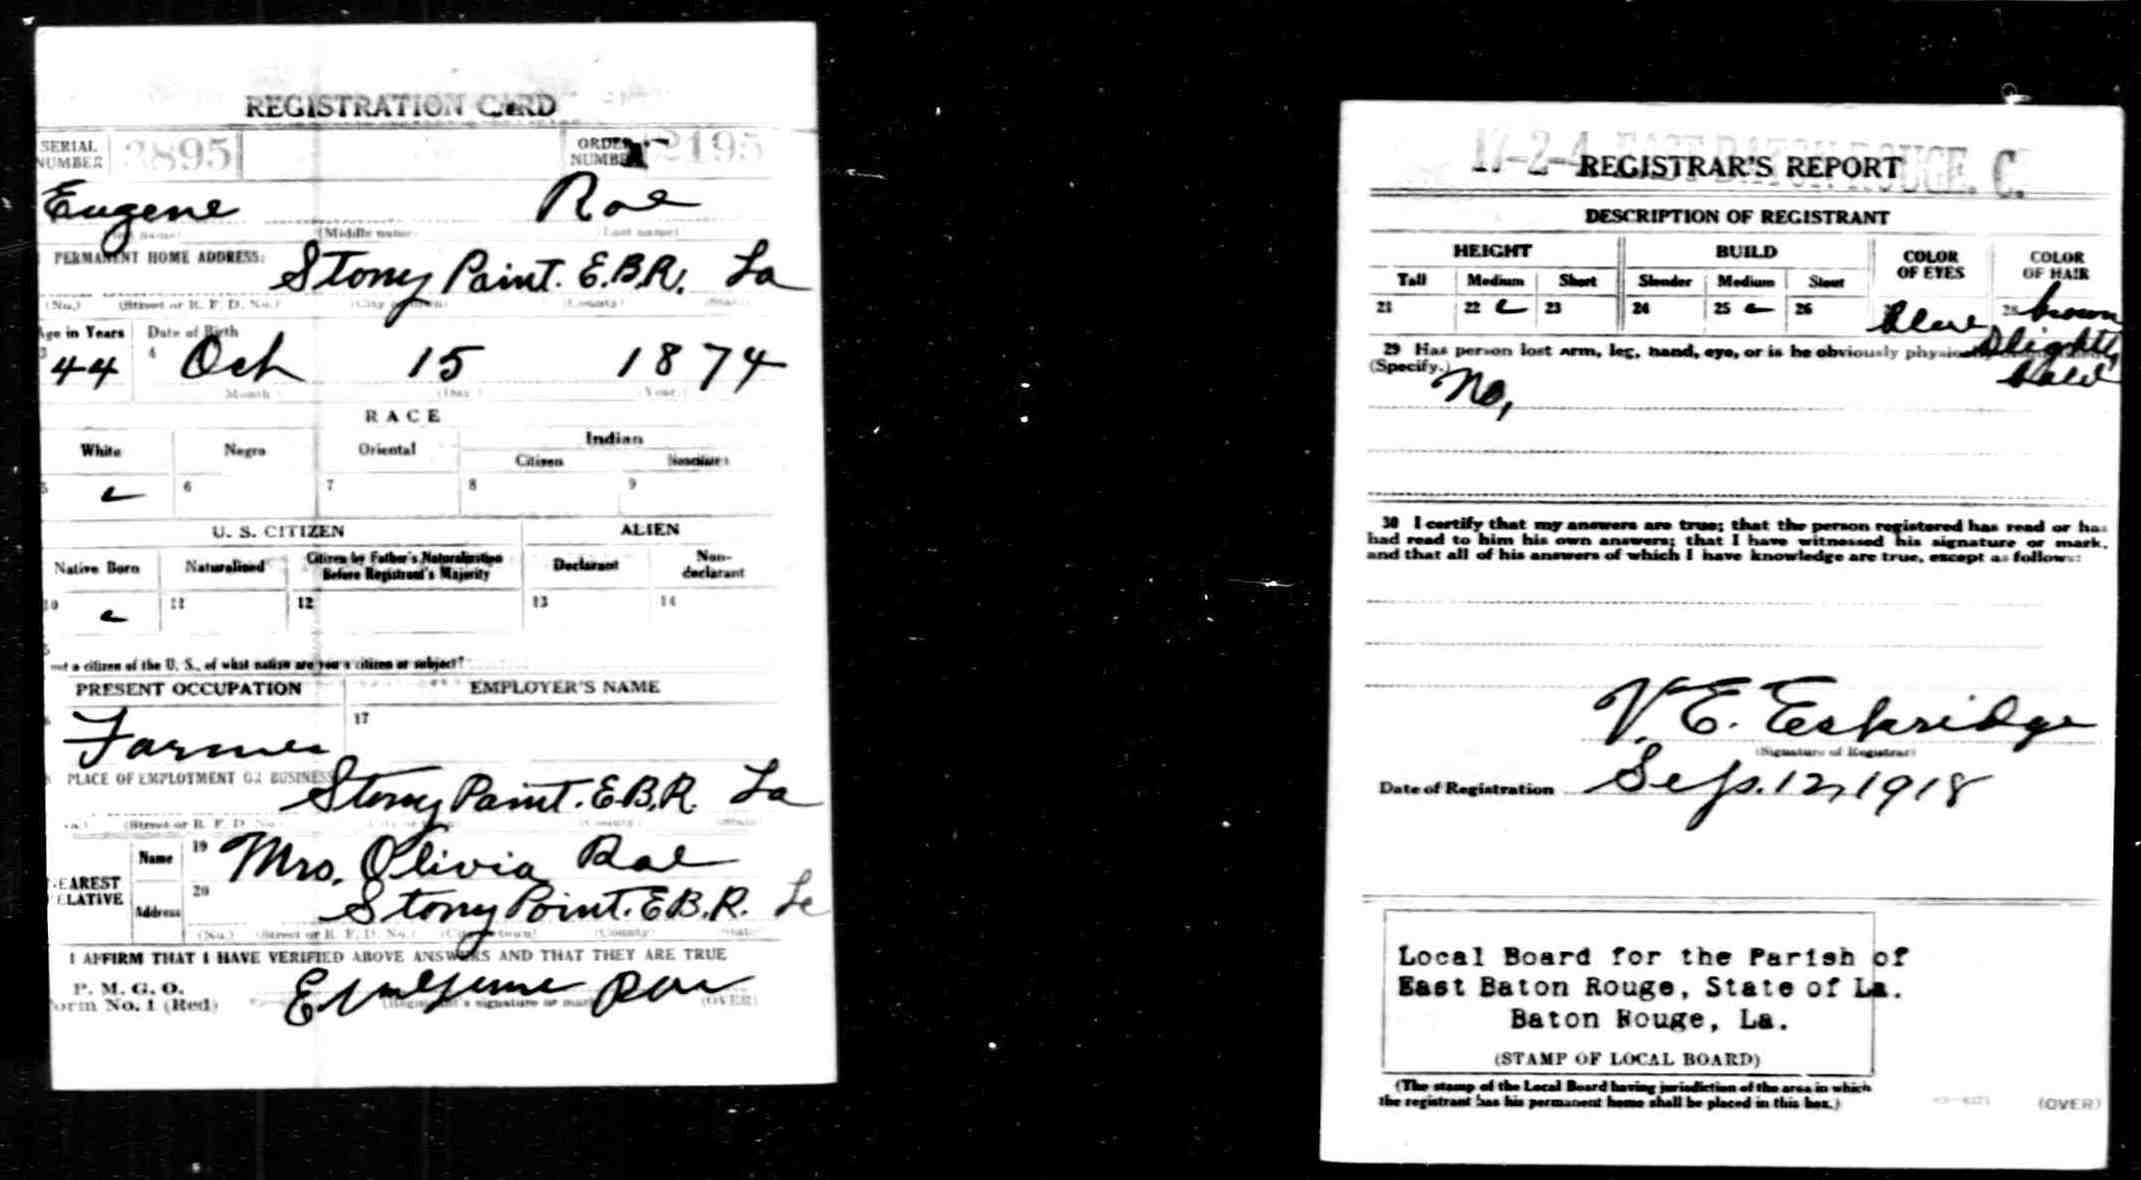 REGISTRATION CARD
SERIAL NUMBER 3895 ORDER NUMBER 2195
Eugene Roe
(Middle name) (Last name)
PERMANENT HOME ADDRESS:
Stony Point. E.B.R. La
(No.) (Street or R. F. D. No.) (City or town) (County) (State)
Age in Years Date of Birth
3 44 4 Oct 15 1874
Month (Day) (Year)
RACE
White Negro Oriental Indian
Citizen Noncitizen
5 6 7 8 9
U. S. CITIZEN ALIEN
Native Born Naturalized Citizen by Father's Naturalization Before Registrant's Majority Declarant Non-declarant
10 11 12 13 14
not a citizen of the U. S., of what nation are you a citizen or subject?
PRESENT OCCUPATION EMPLOYER'S NAME
Farmer 17
PLACE OF EMPLOYMENT OR BUSINESS
Stony Point. E.B.R. La
(Street or R. F. D. No.) (County) (State)
NEAREST RELATIVE
Name 19 Mrs. Olivia Roe
Address 20 Stony Point. E.B.R. La
(No.) (Street or R. F. D. No.) (City or town) (County) (State)
I AFFIRM THAT I HAVE VERIFIED ABOVE ANSWERS AND THAT THEY ARE TRUE
P. M. G. O.
Form No. 1 (Red) Roe
(Registrant's signature or mark) (OVER)
17-2-4 EAST BATON ROUGE. C.
REGISTRAR'S REPORT
DESCRIPTION OF REGISTRANT
HEIGHT BUILD COLOR OF EYES COLOR OF HAIR
Tall Medium Short Slender Medium Stout
21 22 23 24 25 26 blue 28 brown
Slightly
bald
29 Has person lost arm, leg, hand, eye, or is he obviously
(Specify.) No,
30 I certify that my answers are true; that the person registered has read or has
had read to him his own answers; that I have witnessed his signature or mark,
and that all of his answers of which I have knowledge are true, except as follows:
V. E. Eskridge
(Signature of Registrar)
Date of Registration Sep. 12, 1918
Local Board for the Parish of
East Baton Rouge, State of La.
Baton Rouge, La.
(STAMP OF LOCAL BOARD)
(The stamp of the Local Board having jurisdiction of the area in which
the registrant has his permanent home shall be placed in this box.)
(OVER)